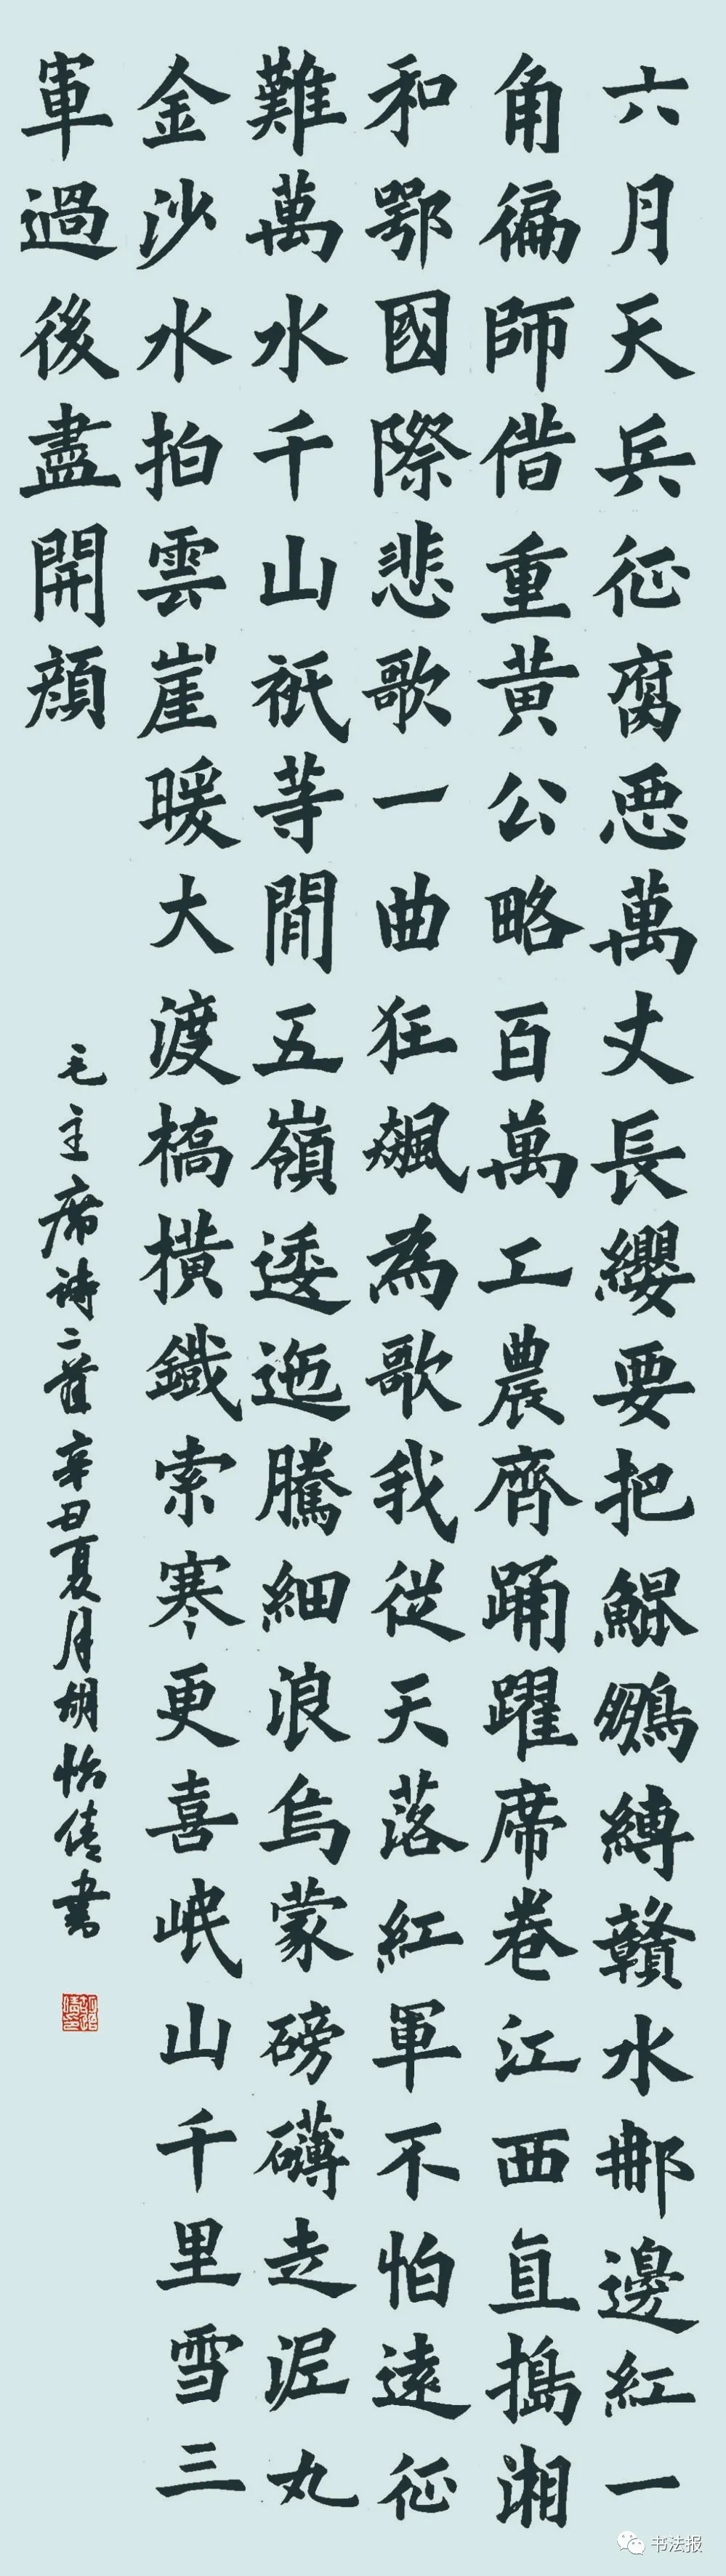 六月天兵征腐惡萬丈長纓要把鯤鵬縛贛水那邊紅一
角徧師借重黃公略百萬工農齊踊躍席卷江西直搗湘
和鄂國際悲歌一曲狂飆為歌我從天落紅軍不怕遠征
難萬水千山祇等閒五嶺逶迤騰細浪烏蒙磅礴走泥丸
金沙水拍雲崖暖大渡橋橫鐵索寒更喜岷山千里雪三
軍過後盡開顏
毛主席詩二首辛丑夏月胡怡倩書
书法报